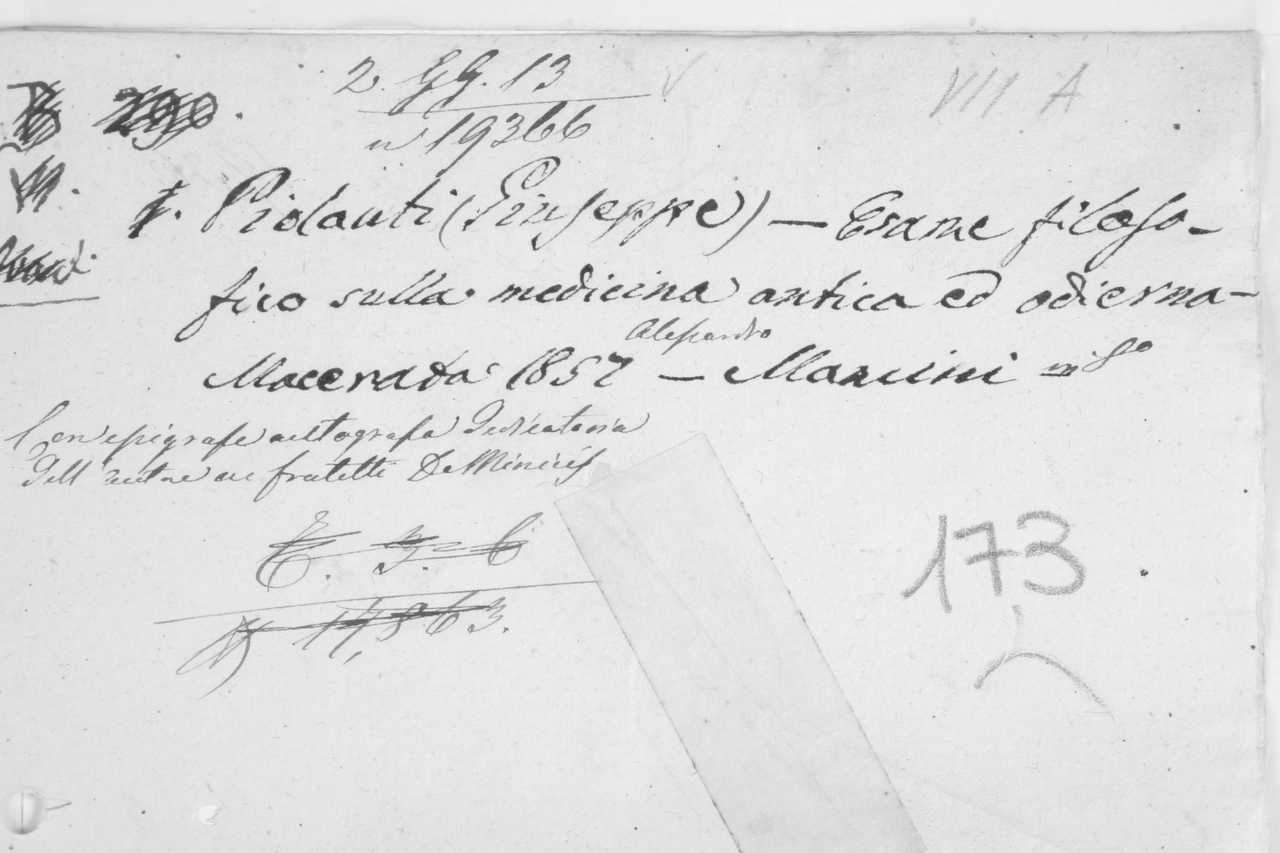 2. GG. 13
VII A
n 19366
Piolanti (Giuseppe) — Esame filoso-
fico sulla medicina antica ed odierna -
Alessandro
Macerata 1857 — Mancini in 8º
Con epigrafe autografa dedicatoria
dell'autore ai fratelli De Minicis
E. 3. 6
173
N 14,863.